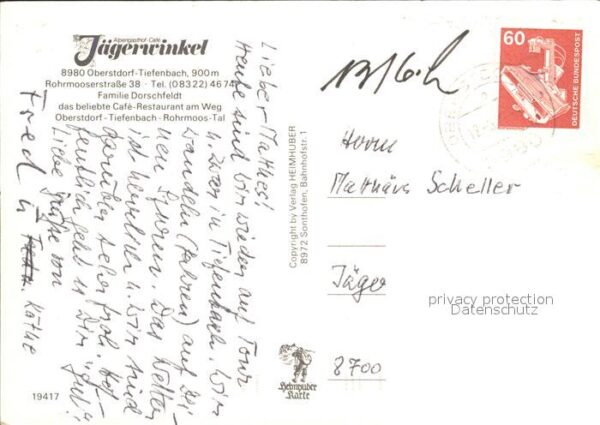 Alpengasthof-Café
Jägerwinkel
8980 Oberstdorf-Tiefenbach, 900 m
Rohrmooserstraße 38 · Tel. (08322) 4674
Familie Dorschfeldt
das beliebte Café-Restaurant am Weg
Oberstdorf - Tiefenbach - Rohrmoos-Tal
Lieber Matthes!
Heute sind wir wieder auf Tour
u. zwar in Tiefenbach. Wir
wandeln (fahren) auf Dei-
nen Spuren. Das Wetter
ist herrlich u. wir sind
darüber sehr froh. Hof-
fentlich geht es Dir "gut"?
Liebe Grüße von
Fred u. Käthe
19417
Copyright by Verlag HEIMHUBER
8972 Sonthofen, Bahnhofstr. 1
Heimhuber
Karte
60
DEUTSCHE BUNDESPOST
Herrn
Mathäus Scheller
Jäger
8700
privacy protection
Datenschutz